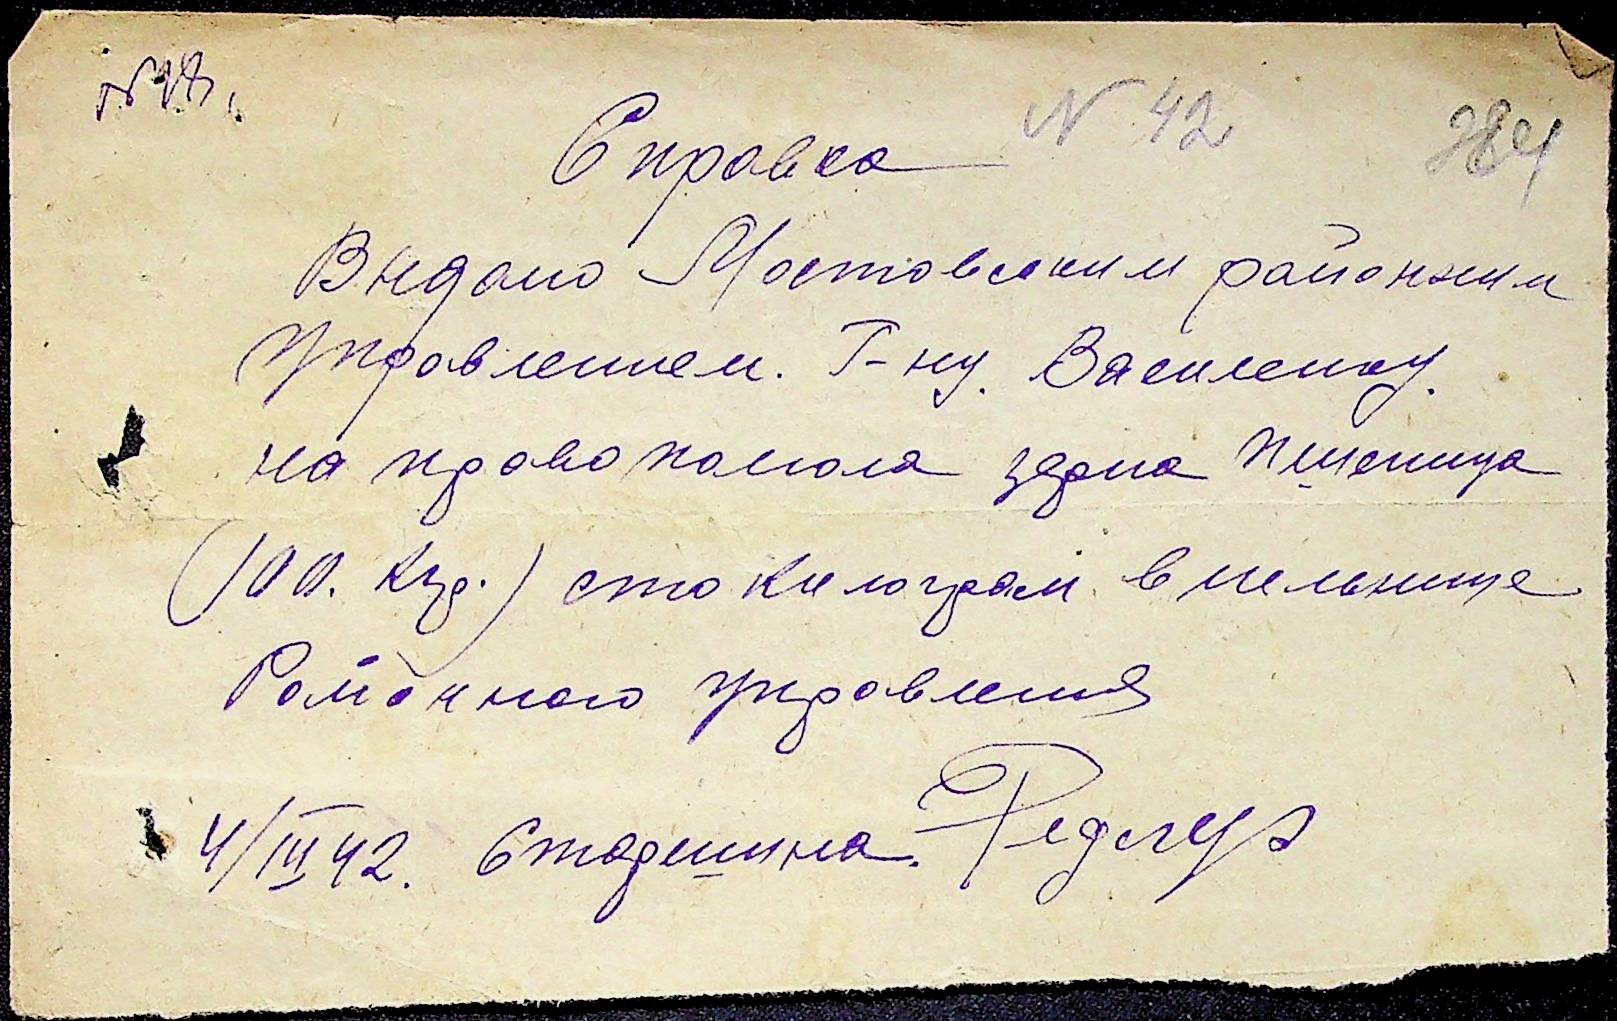 № 48.
Справка № 42
384
Выдано Мостовским районным
Управлением. Г-ну. Василенку.
на право помола зерна пшеница
(100. кгр.) сто килограм в мельнице
Районного управления
4/III 42. Старшина.